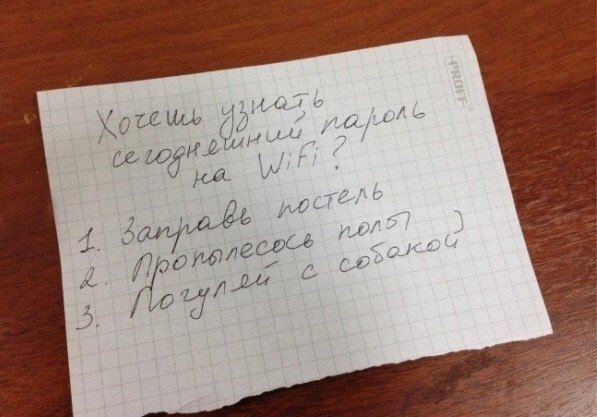 Хочешь узнать
сегодняшний пароль
на WiFi?
1. Заправь постель
2. Пропылесось полы
3. Погуляй с собакой)
PROFF